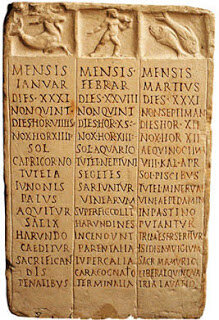 MENSIS
IANVAR
DIES·XXXI
NON·QVINT
DIES·HOR·VIIII
NOX·HOR·XIIII
SOL
CAPRICORNO
TVTELA
IVNONIS
PALVS
AQVITVR
SALIX
HARVNDO
CAEDITVR
SACRIFICAN
DIS
PENATIBVS
MENSIS
FEBRAR
DIES·XXVIII
NON·QVINT
DIES·HOR·XS
NOX·HOR·XIII
SOL·AQVARIO
TVTEL·NEPTVNI
SEGETES
SARIVNTVR
VINEARVM
SVPERFIC·COLIT
HARVNDINES
INCENDVNT
PARENTALIA
LVPERCALIA
CARA·COGNATIO
TERMINALIA
MENSIS
MARTIVS
DIES·XXXI
NON·SEPTIMAN
DIES·HOR·XII
NOX·HOR·XII
AEQVINOCTIVM
VIII·KAL·APR
SOL·PISCIBVS
TVTEL·MINERVAE
VINEAE·PEDAMIN
IN·PASTINO
PVTANTVR
TRIMESTR·SERITVR
SACR·MAMVRIO
LIBERAL·QVINQVA
TRIA·LAVATIO